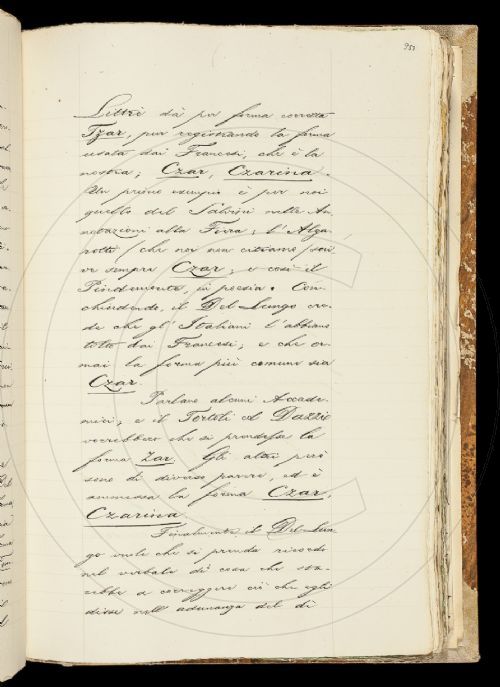 951
Littré dà per forma corretta
Tzar, pur registrando la forma
usata dai Francesi, che è la
nostra; Czar, Czarina.
Un primo esempio è per noi
quello del Salvini nelle An-
notazioni alla Fiera; l'Alga-
rotti (che noi non citiamo) scri-
ve sempre Czar; e così il
Pindemonte, in poesia. Con-
chiudendo, il Del Lungo cre-
de che gl'Italiani l'abbiano
tolto dai Francesi; e che or-
mai la forma più comune sia
Czar.
Parlano alcuni Accade-
mici; e il Tortoli e il Dazzi
vorrebbero che si prendesse la
forma Zar. Gli altri però
sono di diverso parere, ed è
ammessa la forma Czar,
Czarina.
Finalmente il Del Lun-
go vuole che si prenda ricordo
nel verbale di cosa che sta-
rebbe a correggere ciò che egli
disse nell'adunanza del dì